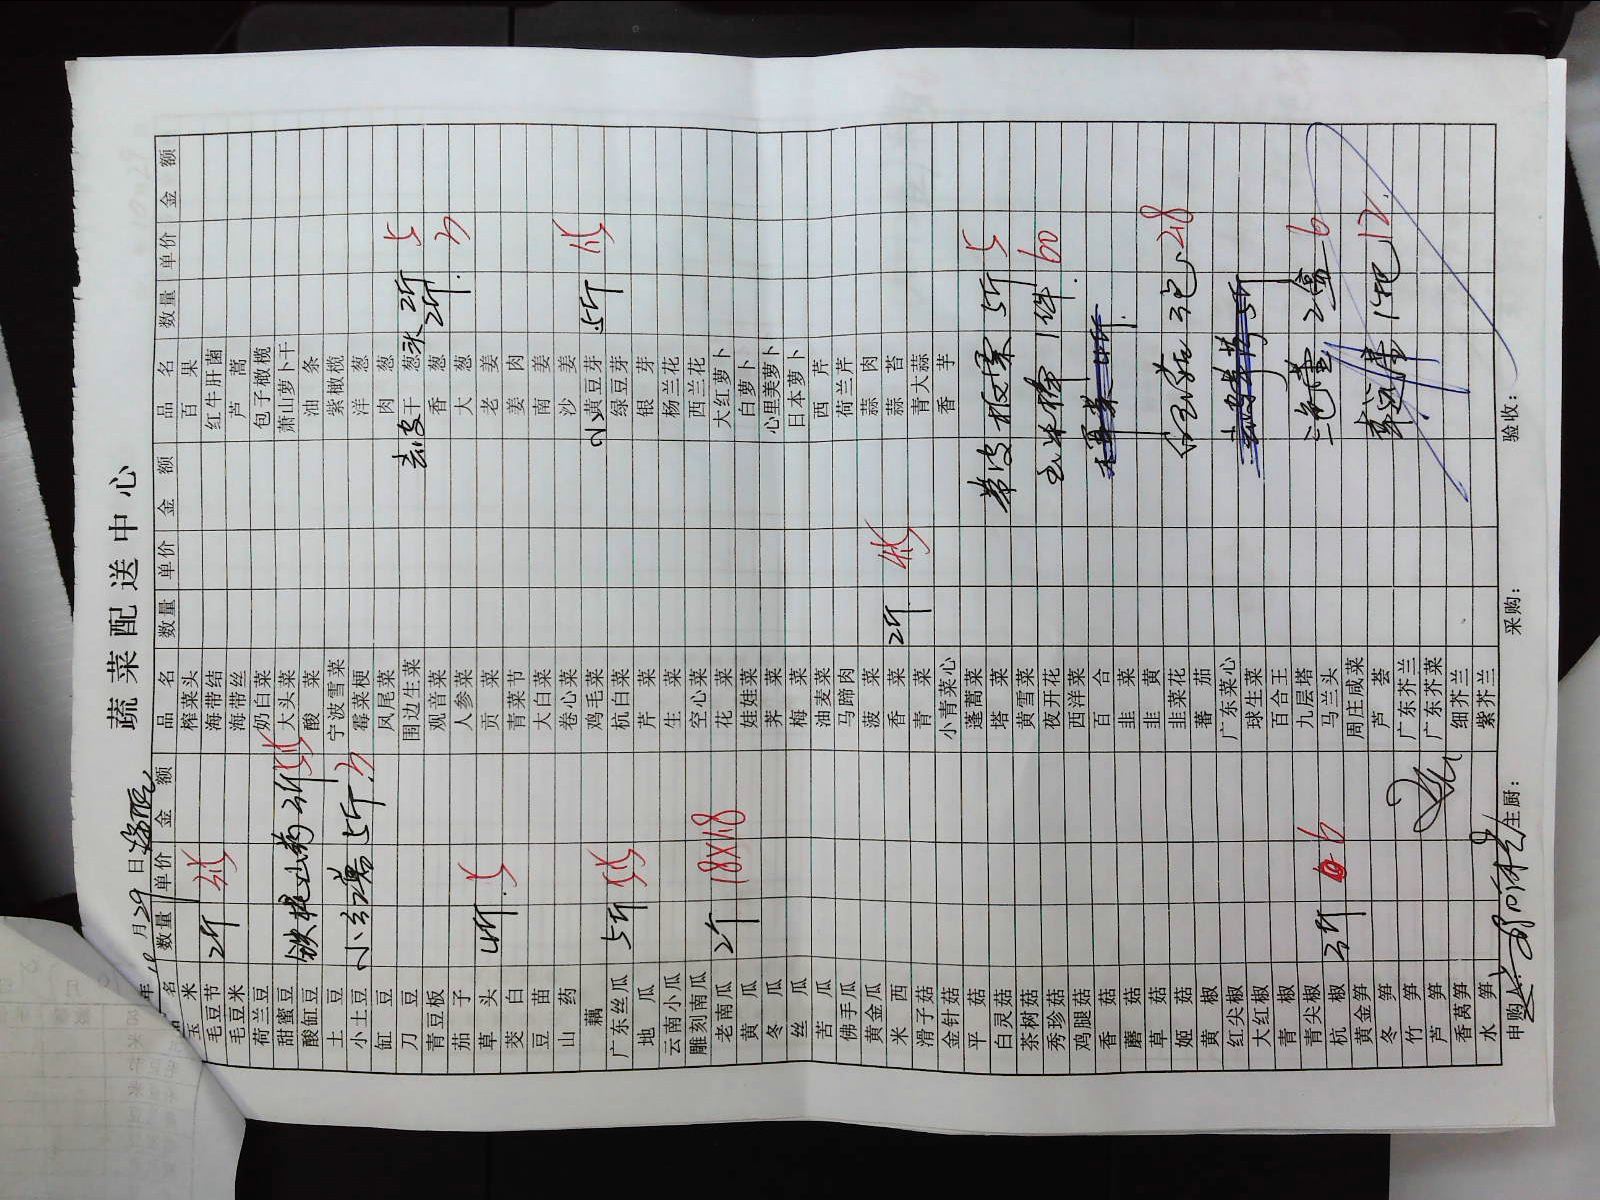 蔬菜配送中心
年 月29日
品名 数量 单价 金额 品名 数量 单价 金额 品名 数量 单价 金额
玉米 榨菜头 百果
毛豆节 2斤 海带结 红牛肝菌
毛豆米 海带丝 芦蒿
荷兰豆 奶白菜 包子橄榄
甜蜜豆 大头菜 萧山萝卜干
酸缸豆 铁棍山药 酸菜 油条
土豆 宁波雪菜 紫橄榄
小土豆 5斤 霉菜梗 洋葱
缸豆 凤尾菜 肉葱
刀豆 围边生菜 去皮干葱头 2斤 5
青豆板 观音菜 香葱 2斤
茄子 人参菜 大葱
草头 4斤 5 贡菜 老姜
茭白 青菜节 姜肉
豆苗 大白菜 南姜
山药 卷心菜 沙姜
藕 鸡毛菜 小黄豆芽 5斤
广东丝瓜 5斤 杭白菜 绿豆芽
地瓜 芹菜 银芽
云南小瓜 生菜 杨兰花
雕刻南瓜 空心菜 西兰花
老南瓜 2斤 18X18 花菜 大红萝卜
黄瓜 娃娃菜 白萝卜
冬瓜 荠菜 心里美萝卜
丝瓜 梅菜 日本萝卜
苦瓜 油麦菜 西芹
佛手瓜 马蹄肉 荷兰芹
黄金瓜 菠菜 蒜肉
米西 香菜 2斤 蒜苔
滑子菇 青菜 青大蒜
金针菇 小青菜心 香芋
平菇 蓬蒿菜
白灵菇 塔菜 带皮板栗 5斤 5
茶树菇 黄雪菜
秀珍菇 夜开花 1件 60
鸡腿菇 西洋菜
香菇 百合
蘑菇 韭菜
草菇 韭黄
姬菇 韭菜花 3包 28
黄椒 蕃茄
红尖椒 广东菜心
大红椒 球生菜
青椒 百合王
青尖椒 九层塔 2盒 6
杭椒 3斤 6 马兰头
黄金笋 周庄咸菜 12
冬笋 芦荟
竹笋 广东芥兰
芦笋 广东芥菜
香莴笋 细芥兰
水笋 紫芥兰
申购人: 主厨: 采购: 验收: